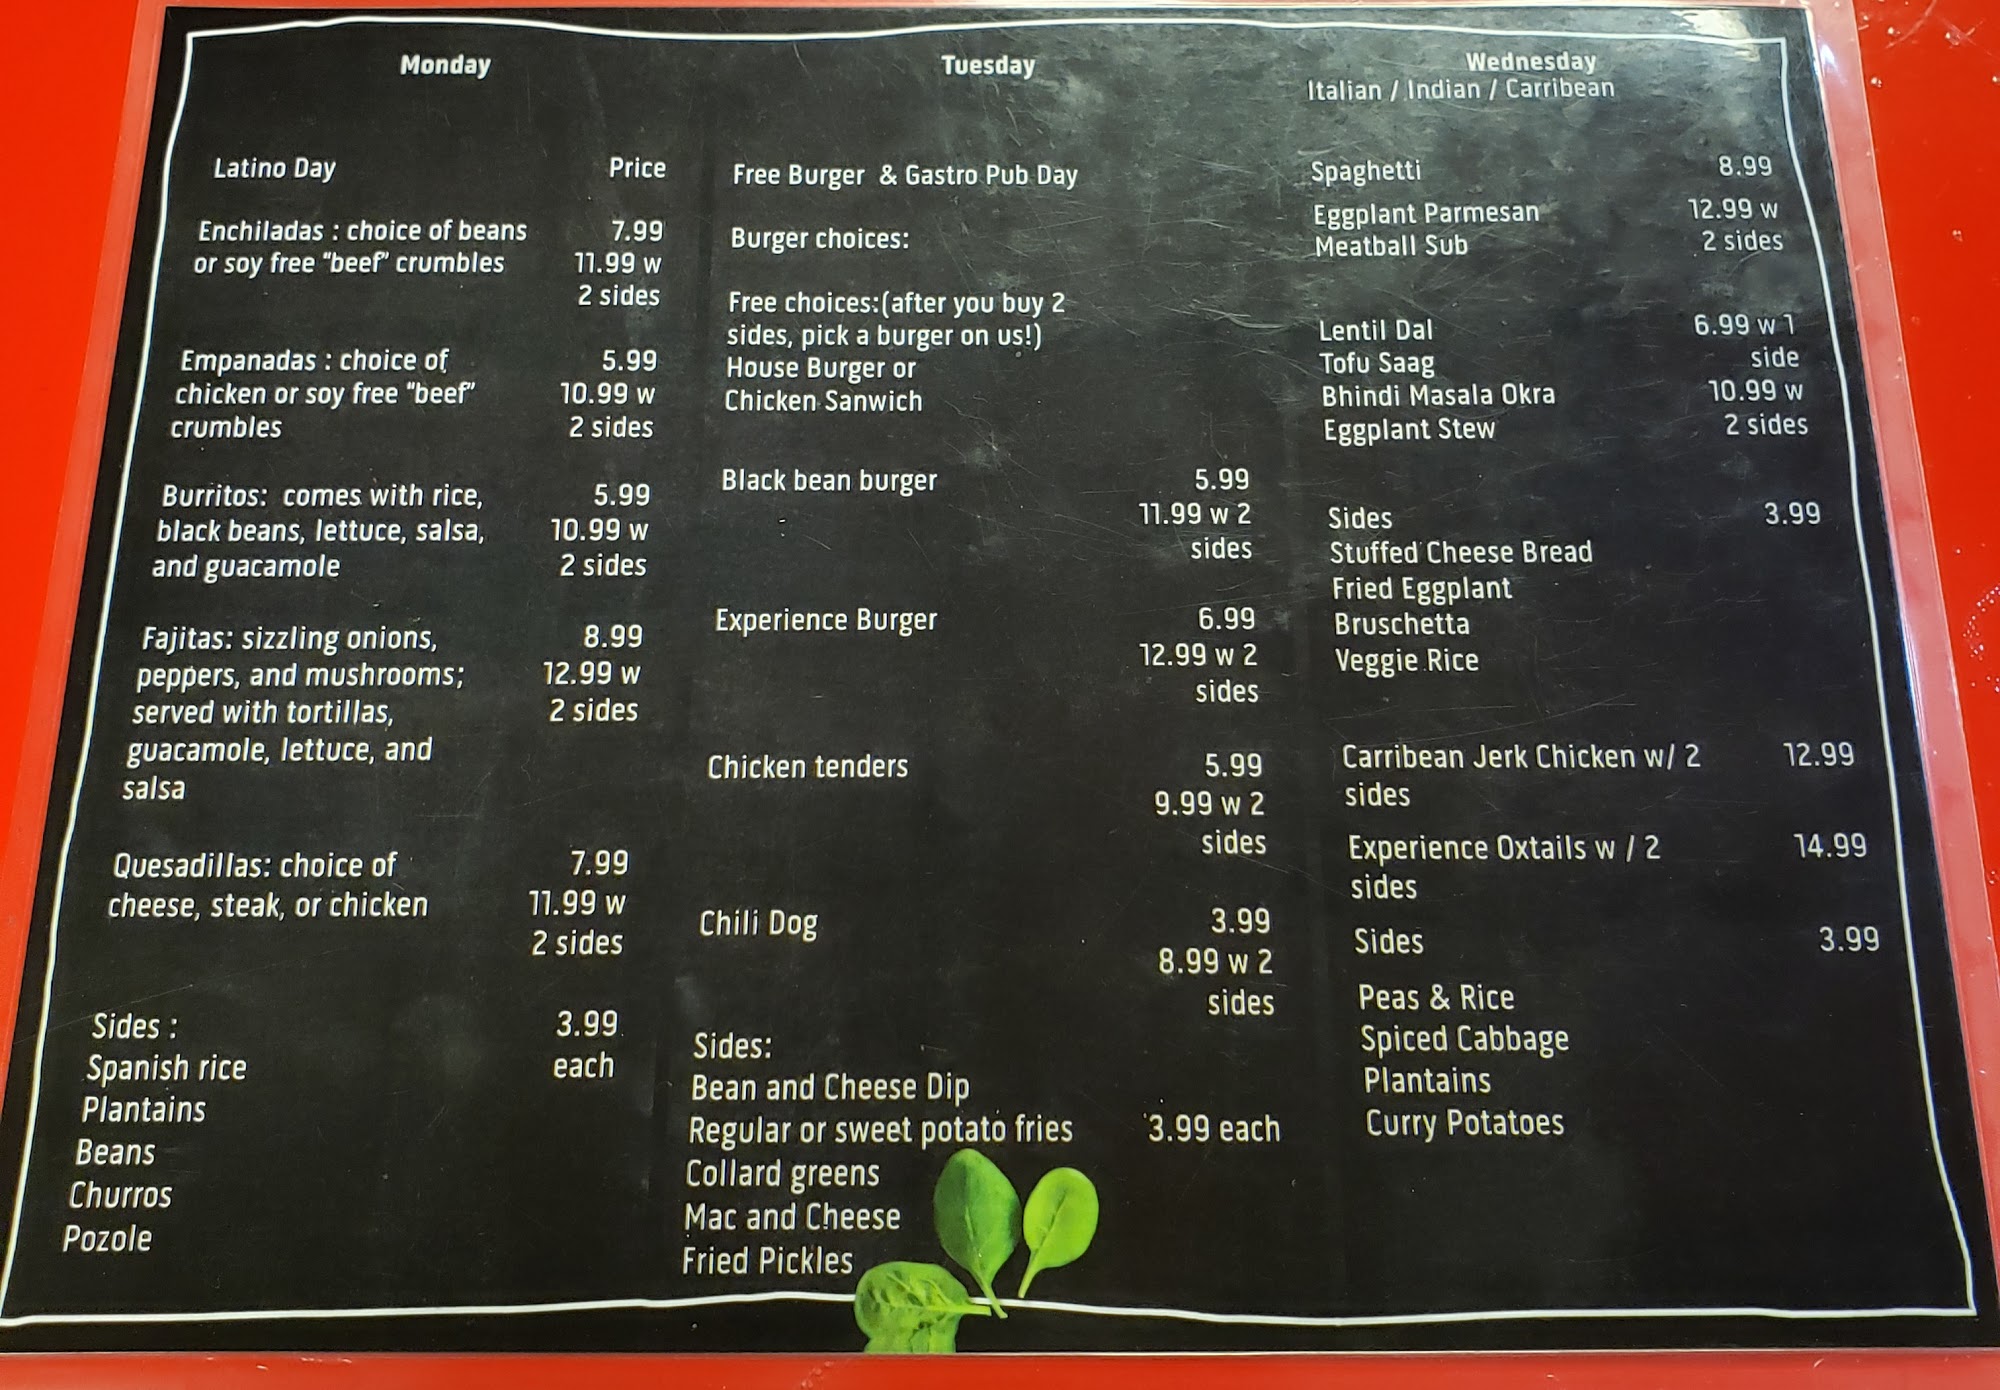 Monday
Latino Day Price
Enchiladas : choice of beans 7.99
or soy free "beef" crumbles 11.99 w
2 sides
Empanadas : choice of 5.99
chicken or soy free "beef" 10.99 w
crumbles 2 sides
Burritos: comes with rice, 5.99
black beans, lettuce, salsa, 10.99 w
and guacamole 2 sides
Fajitas: sizzling onions, 8.99
peppers, and mushrooms; 12.99 w
served with tortillas, 2 sides
guacamole, lettuce, and
salsa
Quesadillas: choice of 7.99
cheese, steak, or chicken 11.99 w
2 sides
Sides : 3.99
Spanish rice each
Plantains
Beans
Churros
Pozole
Tuesday
Free Burger & Gastro Pub Day
Burger choices:
Free choices:(after you buy 2
sides, pick a burger on us!)
House Burger or
Chicken Sanwich
Black bean burger 5.99
11.99 w 2
sides
Experience Burger 6.99
12.99 w 2
sides
Chicken tenders 5.99
9.99 w 2
sides
Chili Dog 3.99
8.99 w 2
sides
Sides:
Bean and Cheese Dip
Regular or sweet potato fries 3.99 each
Collard greens
Mac and Cheese
Fried Pickles
Wednesday
Italian / Indian / Carribean
Spaghetti 8.99
Eggplant Parmesan 12.99 w
Meatball Sub 2 sides
Lentil Dal 6.99 w 1
Tofu Saag side
Bhindi Masala Okra 10.99 w
Eggplant Stew 2 sides
Sides 3.99
Stuffed Cheese Bread
Fried Eggplant
Bruschetta
Veggie Rice
Carribean Jerk Chicken w/ 2 12.99
sides
Experience Oxtails w / 2 14.99
sides
Sides 3.99
Peas & Rice
Spiced Cabbage
Plantains
Curry Potatoes